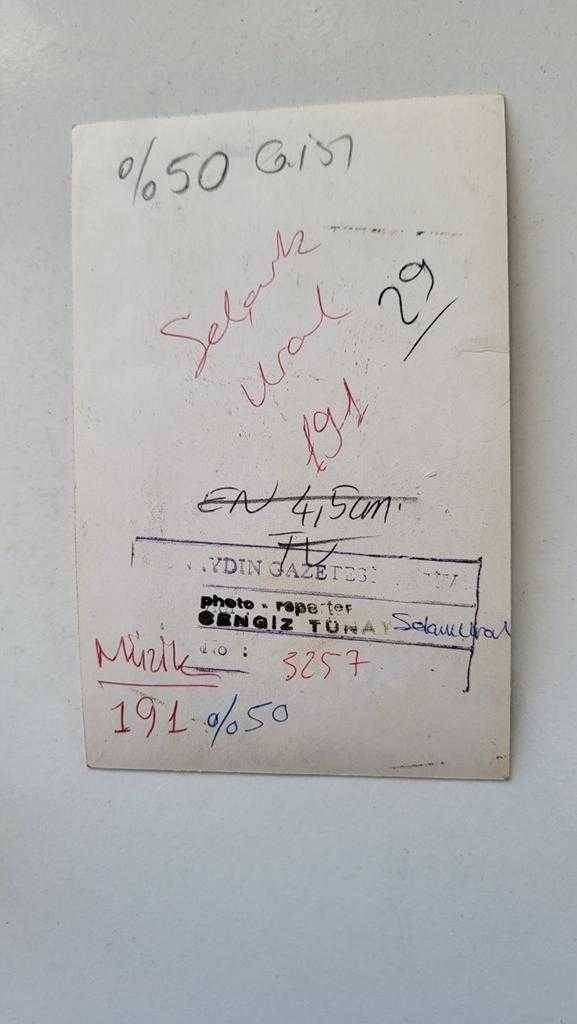 %50
29
Selçuk
Ural
191
EN 4,5cm.
TV
YDIN GAZETESİ
photo - reporter
CENGİZ TÜNAY
Selçuk Ural
No :
3257
Müzik
191 %50